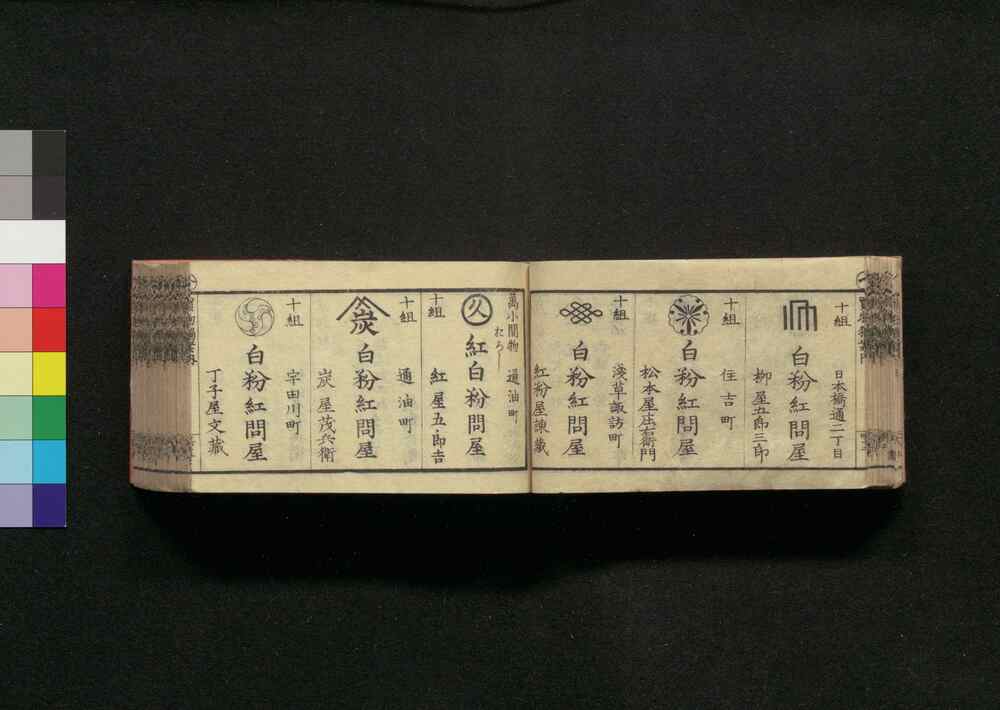 十組
日本橋通二丁目
白粉紅問屋
柳屋五郎三郎
十組
住吉町
白粉紅問屋
松本屋庄右衛門
十組
淺草諏訪町
白粉紅問屋
紅粉屋諌蔵
萬小間物
おろし
通油町
久
紅白粉問屋
十組
紅屋五郎吉
十組
通油町
炭
白粉紅問屋
炭屋茂兵衛
十組
宇田川町
白粉紅問屋
丁子屋文藏